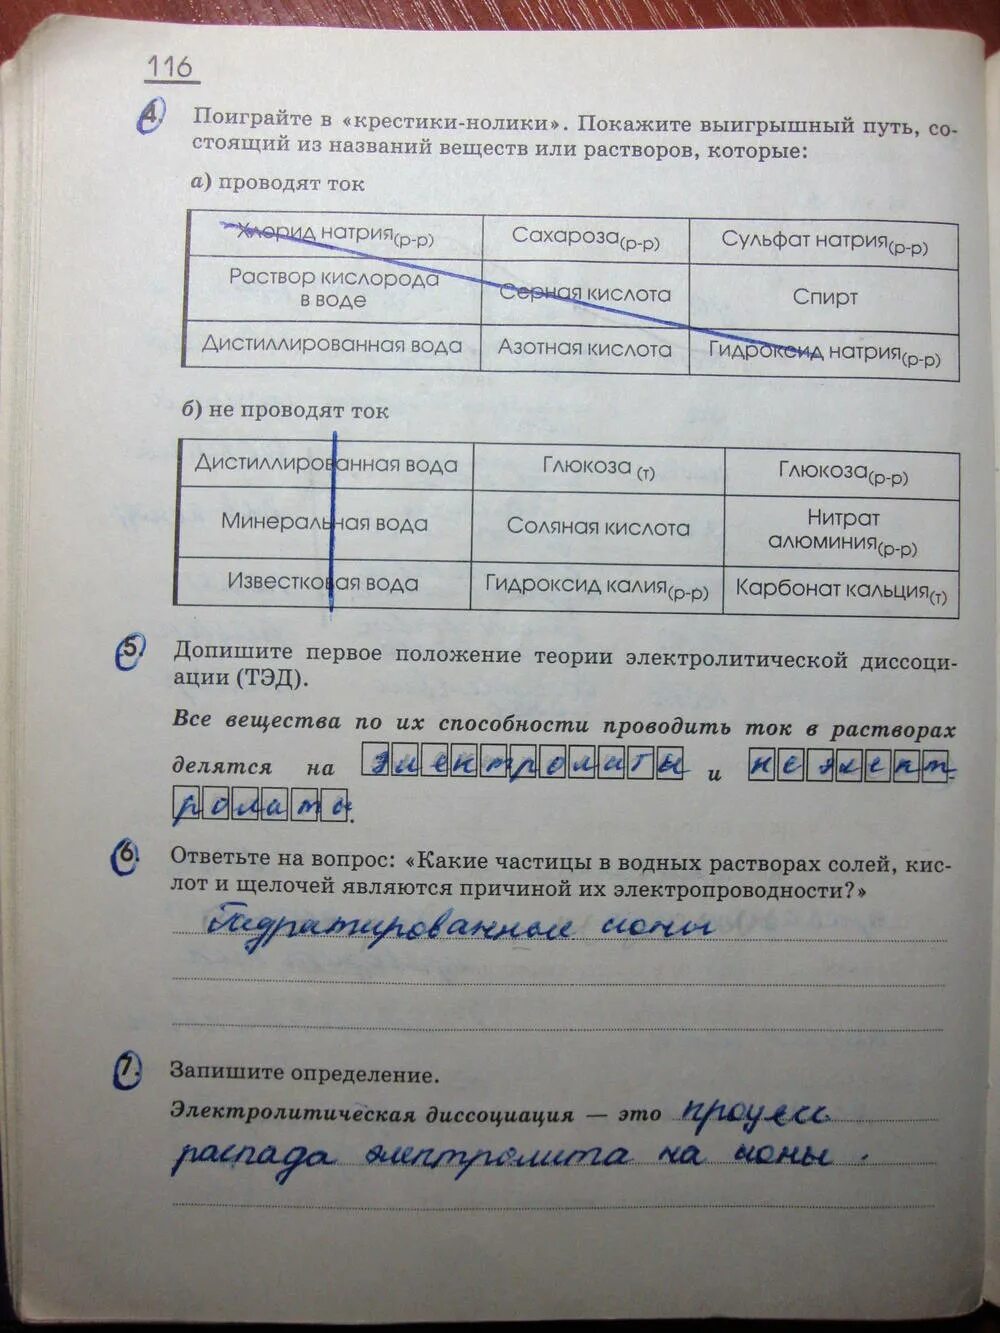 116
4. Поиграйте в «крестики-нолики». Покажите выигрышный путь, со-
стоящий из названий веществ или растворов, которые:
а) проводят ток
Хлорид натрия(р-р) Сахароза(р-р) Сульфат натрия(р-р)
Раствор кислорода в воде Серная кислота Спирт
Дистиллированная вода Азотная кислота Гидроксид натрия(р-р)
б) не проводят ток
Дистиллированная вода Глюкоза (т) Глюкоза(р-р)
Минеральная вода Соляная кислота Нитрат алюминия(р-р)
Известковая вода Гидроксид калия(р-р) Карбонат кальция(т)
5. Допишите первое положение теории электролитической диссоци-
ации (ТЭД).
Все вещества по их способности проводить ток в растворах
делятся на электролиты и неэлект-
ролиты.
6. Ответьте на вопрос: «Какие частицы в водных растворах солей, кис-
лот и щелочей являются причиной их электропроводности?»
Гидратированные ионы
7. Запишите определение.
Электролитическая диссоциация — это процесс
распада электролита на ионы.